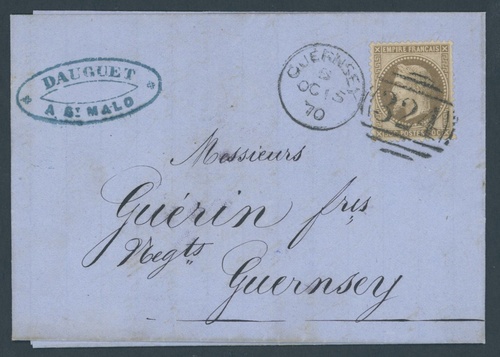 DAUGUET
A St. MALO
GUERNSEY
OC 15
70
EMPIRE FRANÇAIS
324
POSTES
Messieurs
Guérin frès
Negts
Guernsey